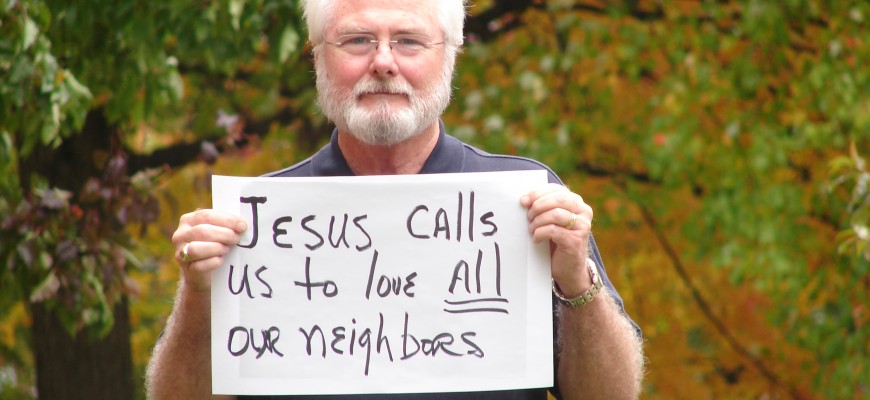 Jesus calls
us to love All
our neighbors